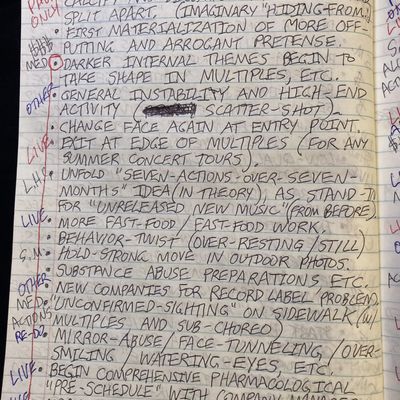 SPLIT APART. (IMAGINARY "HIDING-FROM")
• FIRST MATERIALIZATION OF MORE OFF-
PUTTING AND ARROGANT PRETENSE.
MED. • DARKER INTERNAL THEMES BEGIN TO
TAKE SHAPE IN MULTIPLES, ETC.
OTHER • GENERAL INSTABILITY AND HIGH-END
ACTIVITY ( SCATTER-SHOT).
• CHANGE FACE AGAIN AT ENTRY POINT.
LIVE. • EXIT AT EDGE OF MULTIPLES (FOR ANY
SUMMER CONCERT TOURS).
• UNFOLD "SEVEN-ACTIONS-OVER-SEVEN-
MONTHS" IDEA (IN THEORY), AS STAND-IN
FOR "UNRELEASED NEW MUSIC" (FROM BEFORE)
LIVE. • MORE FAST-FOOD / FAST-FOOD WORK.
• BEHAVIOR-TWIST (OVER-RESTING / STILL)
S.M. • HOLD-STRONG MOVE IN OUTDOOR PHOTOS.
• SUBSTANCE ABUSE PREPARATIONS ETC.
OTHER • NEW COMPANIES FOR RECORD LABEL PROBLEM
MED. • "UNCONFIRMED-SIGHTING" ON SIDEWALK (W/
ACTIONS MULTIPLES AND SUB-CHORED)
RE-DO. • MIRROR-ABUSE / FACE-TUNNELING / OVER-
SMILING / WATERING-EYES, ETC.
LIVE. • BEGIN COMPREHENSIVE PHARMACOLOGICAL
"PRE-SCHEDULE" WITH COMPANY